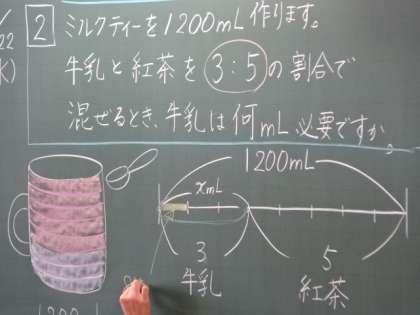 22
2
ミルクティーを1200mL作ります。
(K)
牛乳と紅茶を3:5の割合で
混ぜるとき、牛乳は何mL必要ですか。
1200mL
xmL
3
5
牛乳
紅茶